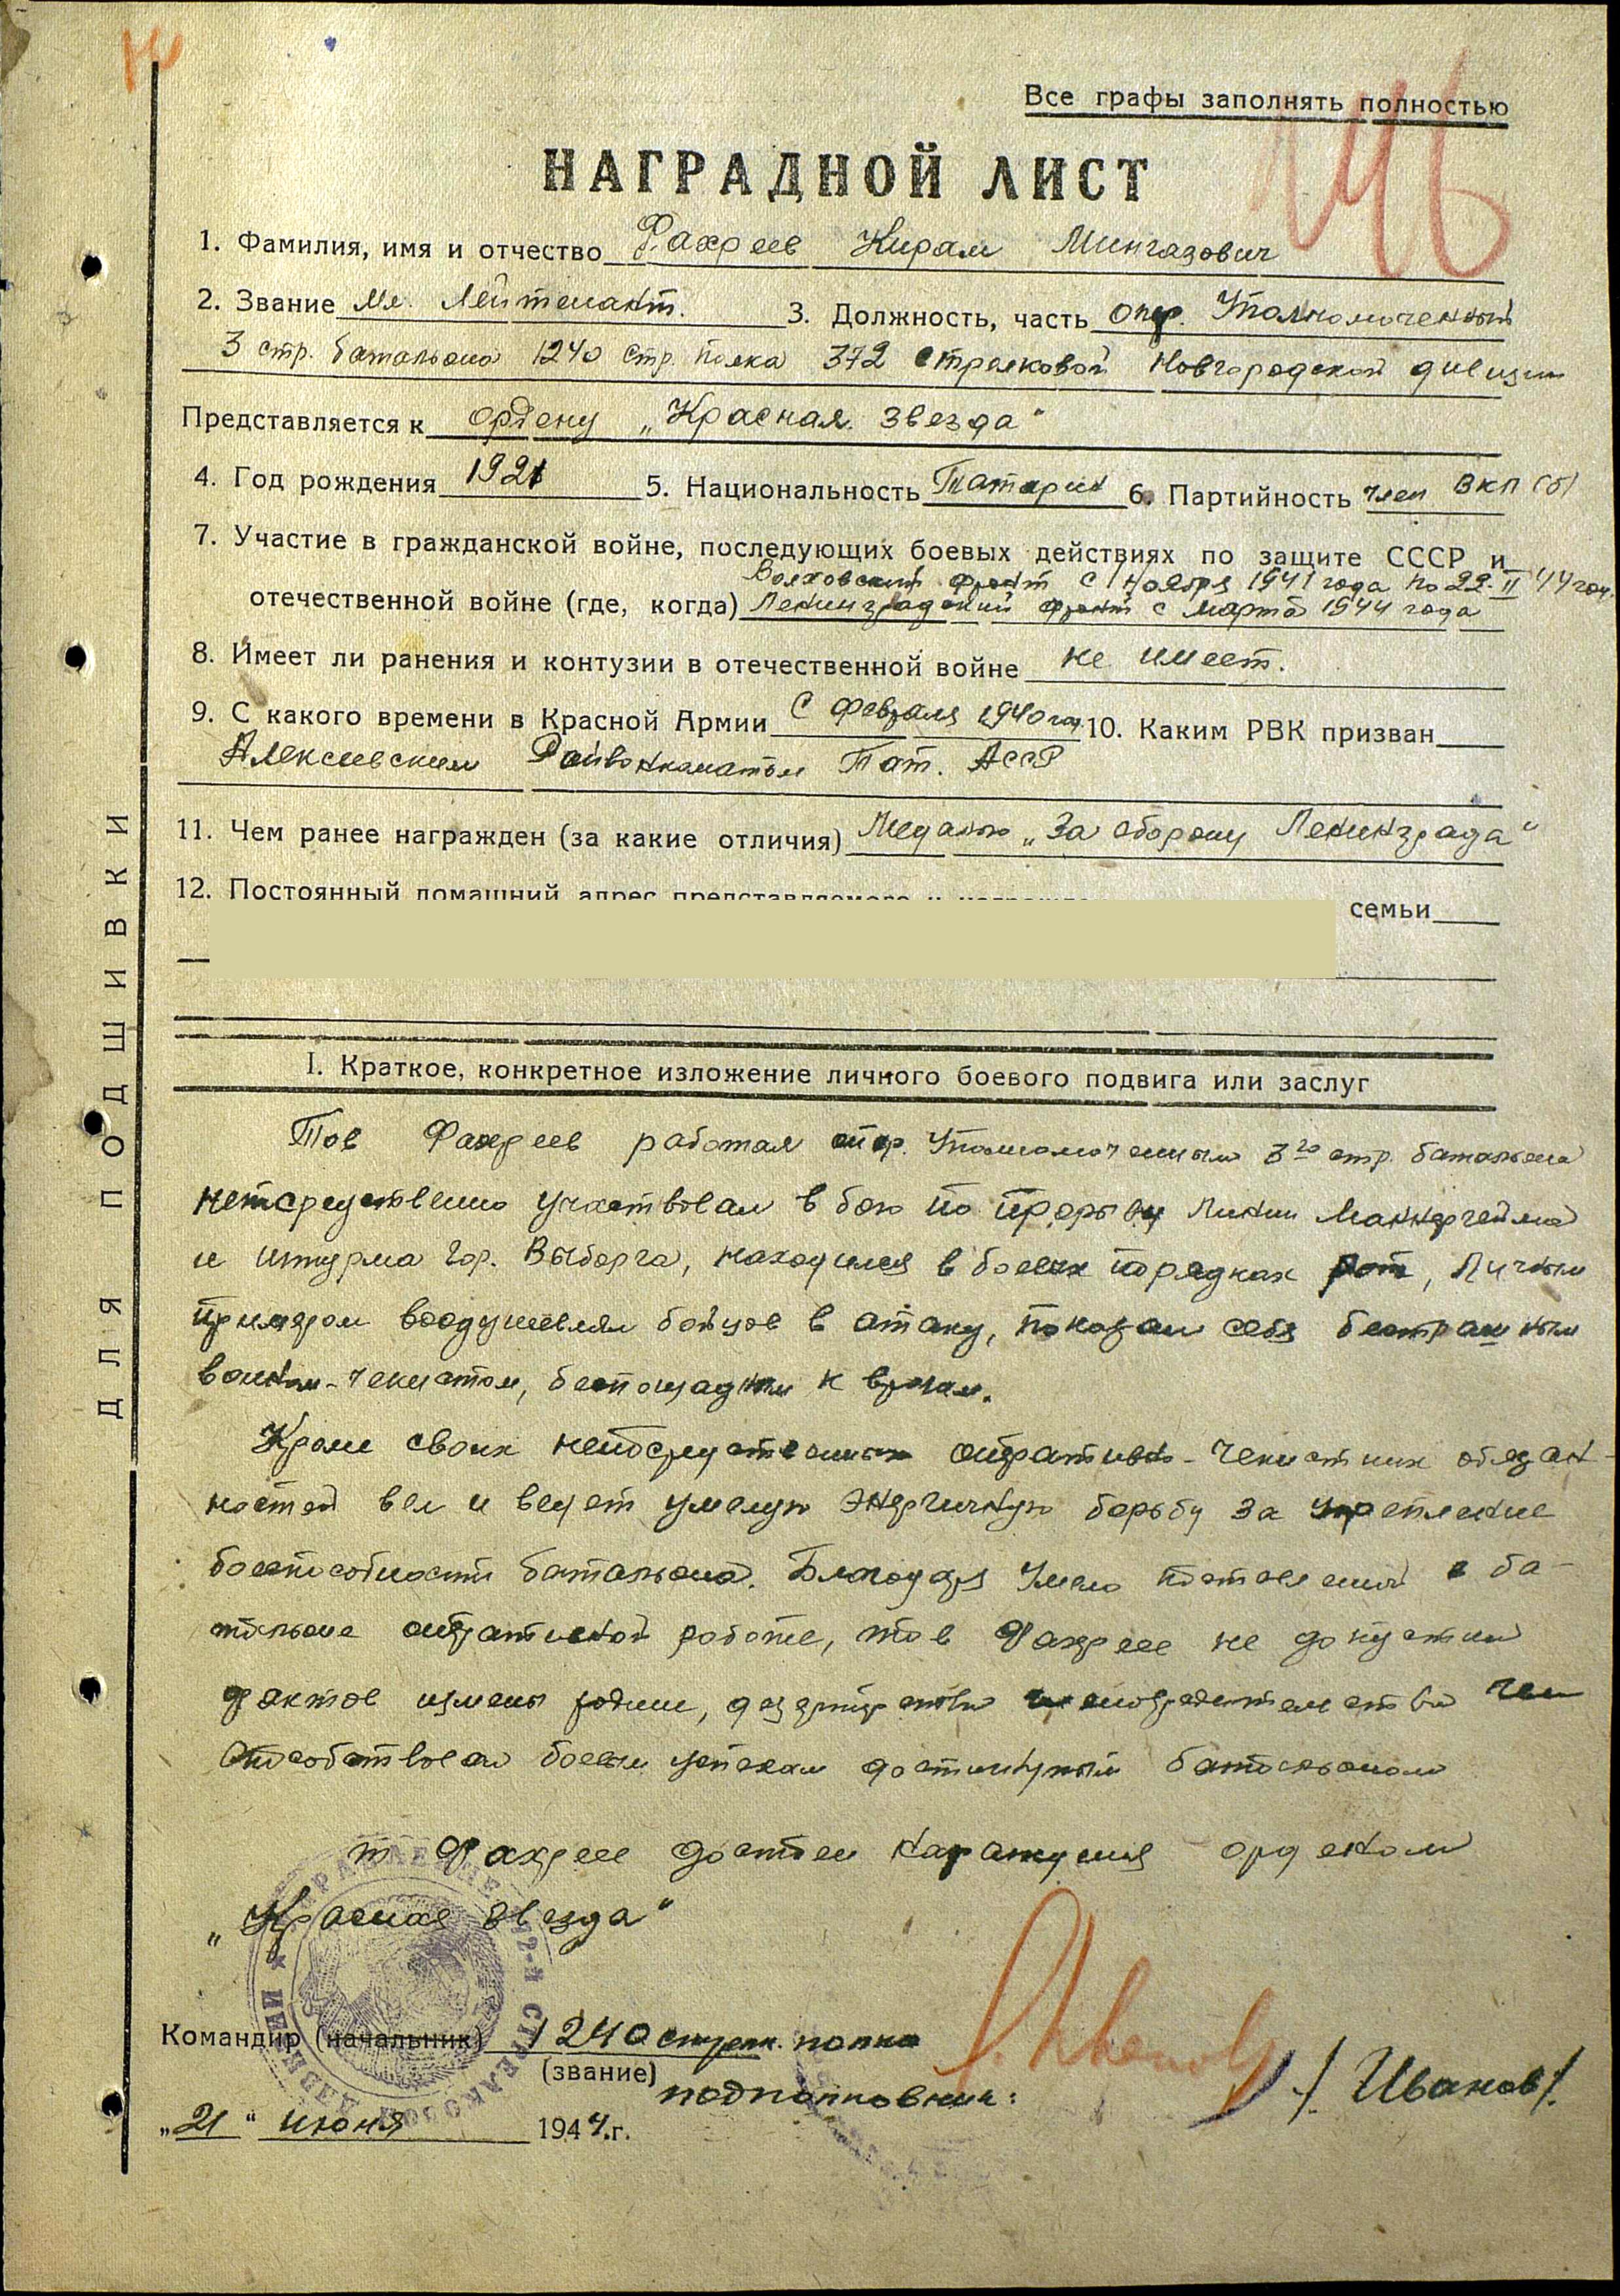 Все графы заполнять полностью
146
НАГРАДНОЙ ЛИСТ
1. Фамилия, имя и отчество Фахреев Кирам Мингазович
2. Звание Мл. Лейтенант. 3. Должность, часть опер. Уполномоченный
3 стр. батальона 1240 стр. полка 372 стрелковой Новгородской дивизии
Представляется к ордену „Красная звезда"
4. Год рождения 1921 5. Национальность Татарин 6. Партийность член ВКП(б)
7. Участие в гражданской войне, последующих боевых действиях по защите СССР и
Волховский фронт с 1 ноября 1941 года по 22.II 44 год.
отечественной войне (где, когда) Ленинградский фронт с марта 1944 года
8. Имеет ли ранения и контузии в отечественной войне не имеет.
9. С какого времени в Красной Армии с февраля 1940 год 10. Каким РВК призван
Алексеевским Райвоенкоматом Тат. АССР
11. Чем ранее награжден (за какие отличия) Медалью „За оборону Ленинграда"
12. Постоянный домашний адрес представляемого к семьи
I. Краткое, конкретное изложение личного боевого подвига или заслуг
Тов Фахреев работая опер. Уполномоченным 3го стр. батальона
непосредственно участвовал в бою по прорыву Линии Маннергейма
и штурма гор. Выборга, находился в боевых порядках рот, Личным
примером воодушевлял бойцов в атаку, показал себя бесстрашным
воином-чекистом, беспощадным к врагам.
Кроме своих непосредственных оперативно-чекистских обязан-
ностей вел и ведет умелую энергичную борьбу за укрепление
боеспособности батальона. Благодаря умело поставленной в ба-
тальоне оперативной работе, тов Фахреев не допустил
фактов измены родине, дезертирства членовредительства чем
способствовал боевым успехам достигнутым батальоном
т Фахреев достоин награждения орденом
„Красная звезда"
Командир (начальник) 1240 стрелк. полка
(звание) подполковник: /Иванов/.
„21" июня 1944.г.
ДЛЯ ПОДШИВКИ